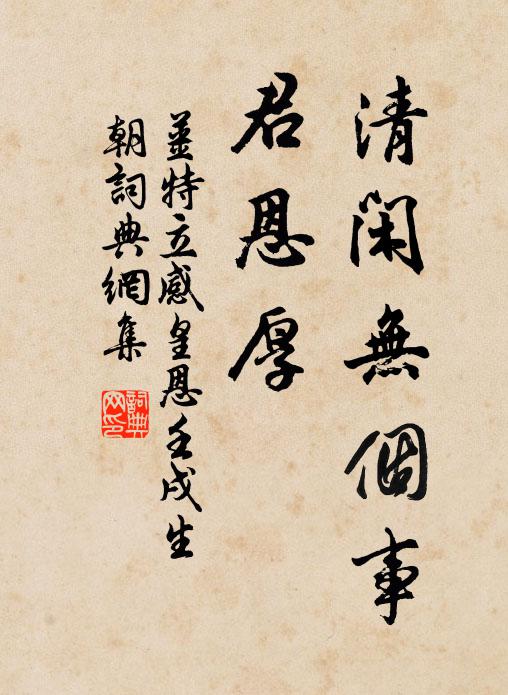 清閑無個事
君恩厚
姜特立感皇恩壬戌生
朝詞典網集
詞典
网印